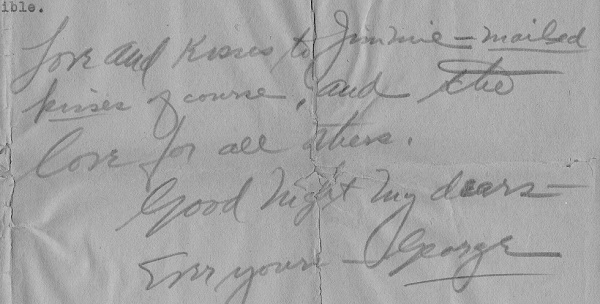 ible.
Love and Kisses to Jimmie – mailed
kisses of course, and the
love for all others.
Good Night My dears –
Ever yours – George